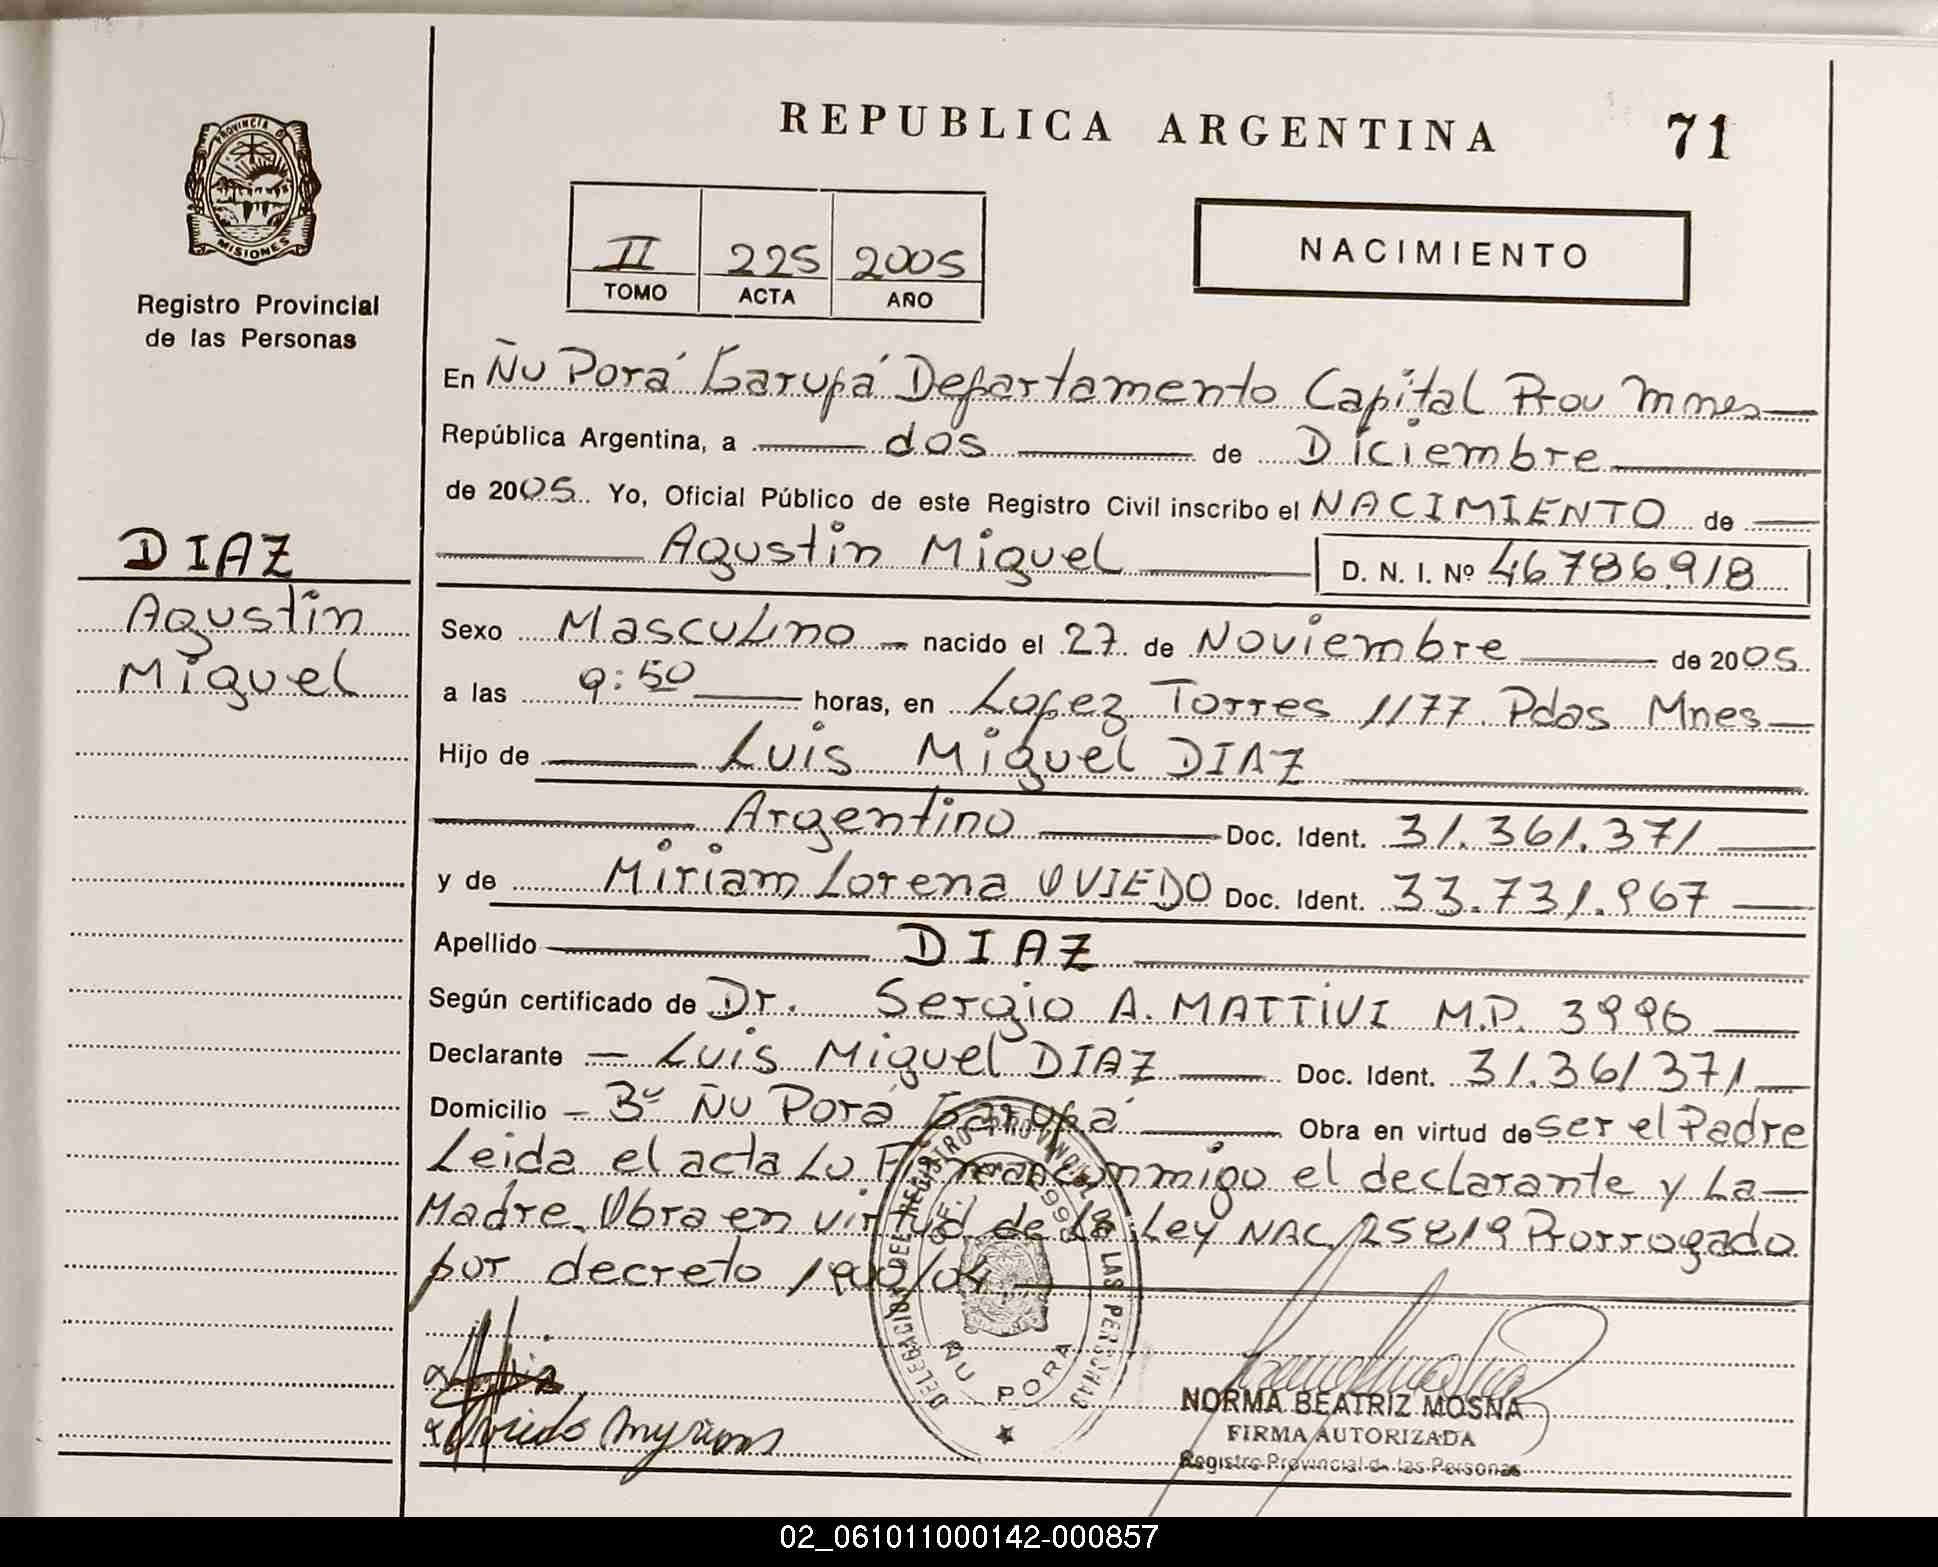 REPUBLICA ARGENTINA
71
PROVINCIA DE
MISIONES
Registro Provincial
de las Personas
II 225 2005
TOMO ACTA AÑO
NACIMIENTO
En Ñu Porá Garupá Departamento Capital Prov Mnes
República Argentina, a dos de Diciembre
de 2005. Yo, Oficial Público de este Registro Civil inscribo el NACIMIENTO de
Agustin Miguel D. N. I. Nº 46786918
DIAZ
Agustin
Miguel
Sexo Masculino nacido el 27 de Noviembre de 2005
a las 9:50 horas, en Lopez Torres 1177 Pdas Mnes
Hijo de Luis Miguel DIAZ
Argentino Doc. Ident. 31.361.371
y de Miriam Lorena OVIEDO Doc. Ident. 33.731.967
Apellido DIAZ
Según certificado de Dr. Sergio A. MATTIVI M.P. 3996
Declarante Luis Miguel DIAZ Doc. Ident. 31.361371
Domicilio Bº Ñu Porá Garupá Obra en virtud de ser el Padre
Leida el acta Lo Firman conmigo el declarante y La
Madre. Obra en virtud de La Ley NAC 25819 Prorrogado
por decreto 1900/04
DELEGACION DEL REGISTRO PROVINCIAL DE LAS PERSONAS
ÑU PORA
Oviedo Myriam
NORMA BEATRIZ MOSNA
FIRMA AUTORIZADA
Registro Provincial de las Personas
02_061011000142-000857